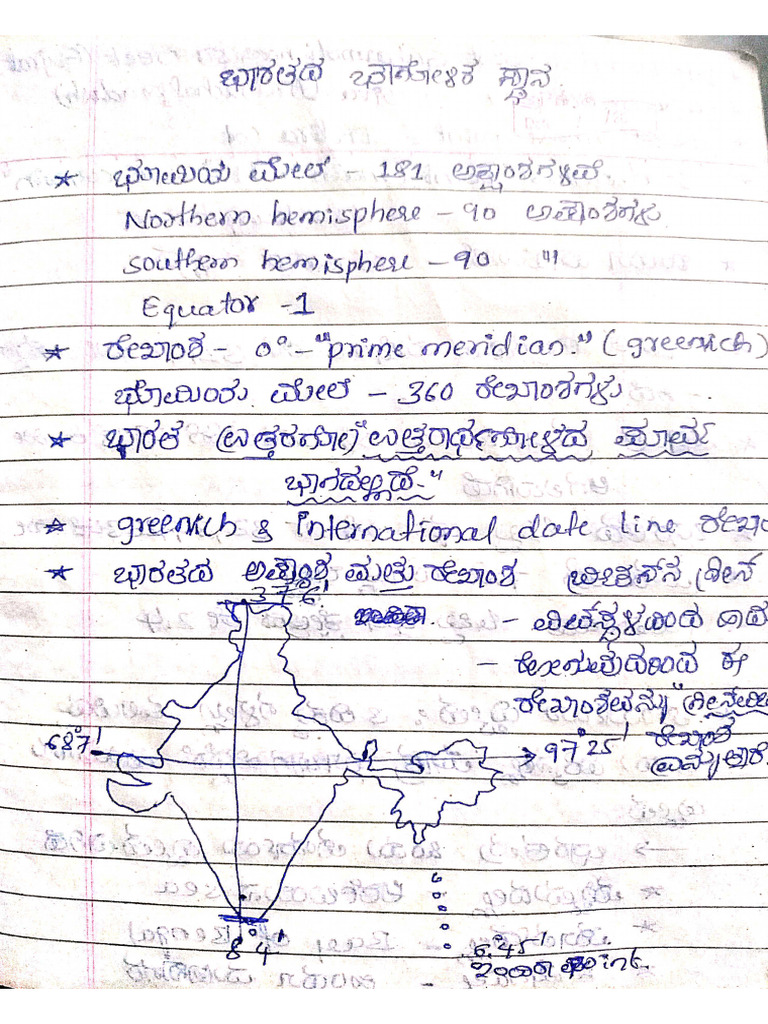 ಭಾರತದ ಭೌಗೋಳಿಕ ಸ್ಥಾನ.
★ ಭೂಮಿಯ ಮೇಲೆ - 181 ಅಕ್ಷಾಂಶಗಳಿವೆ.
Northern hemisphere - 90 ಅಕ್ಷಾಂಶಗಳು
southern hemisphere - 90 "
Equator - 1
★ ರೇಖಾಂಶ - 0° - "prime meridian." (greenich)
ಭೂಮಿಯ ಮೇಲೆ - 360 ರೇಖಾಂಶಗಳು
★ ಭಾರತ (ಉತ್ತರಗೋ) "ಉತ್ತರಾರ್ಧಗೋಳದ ಪೂರ್ವ
ಭಾಗದಲ್ಲಿದೆ-"
★ greenich & International date line
★ ಭಾರತದ ಅಕ್ಷಾಂಶ ಮತ್ತು ರೇಖಾಂಶ
37 6'
- ಹೋಗುವುದರಿಂದ ಈ
ರೇಖಾಂಶವನ್ನು
68°7' 97°25' ರೇಖಾಂಶ
8°4' 6°45'
ಇಂದಿರಾ point.